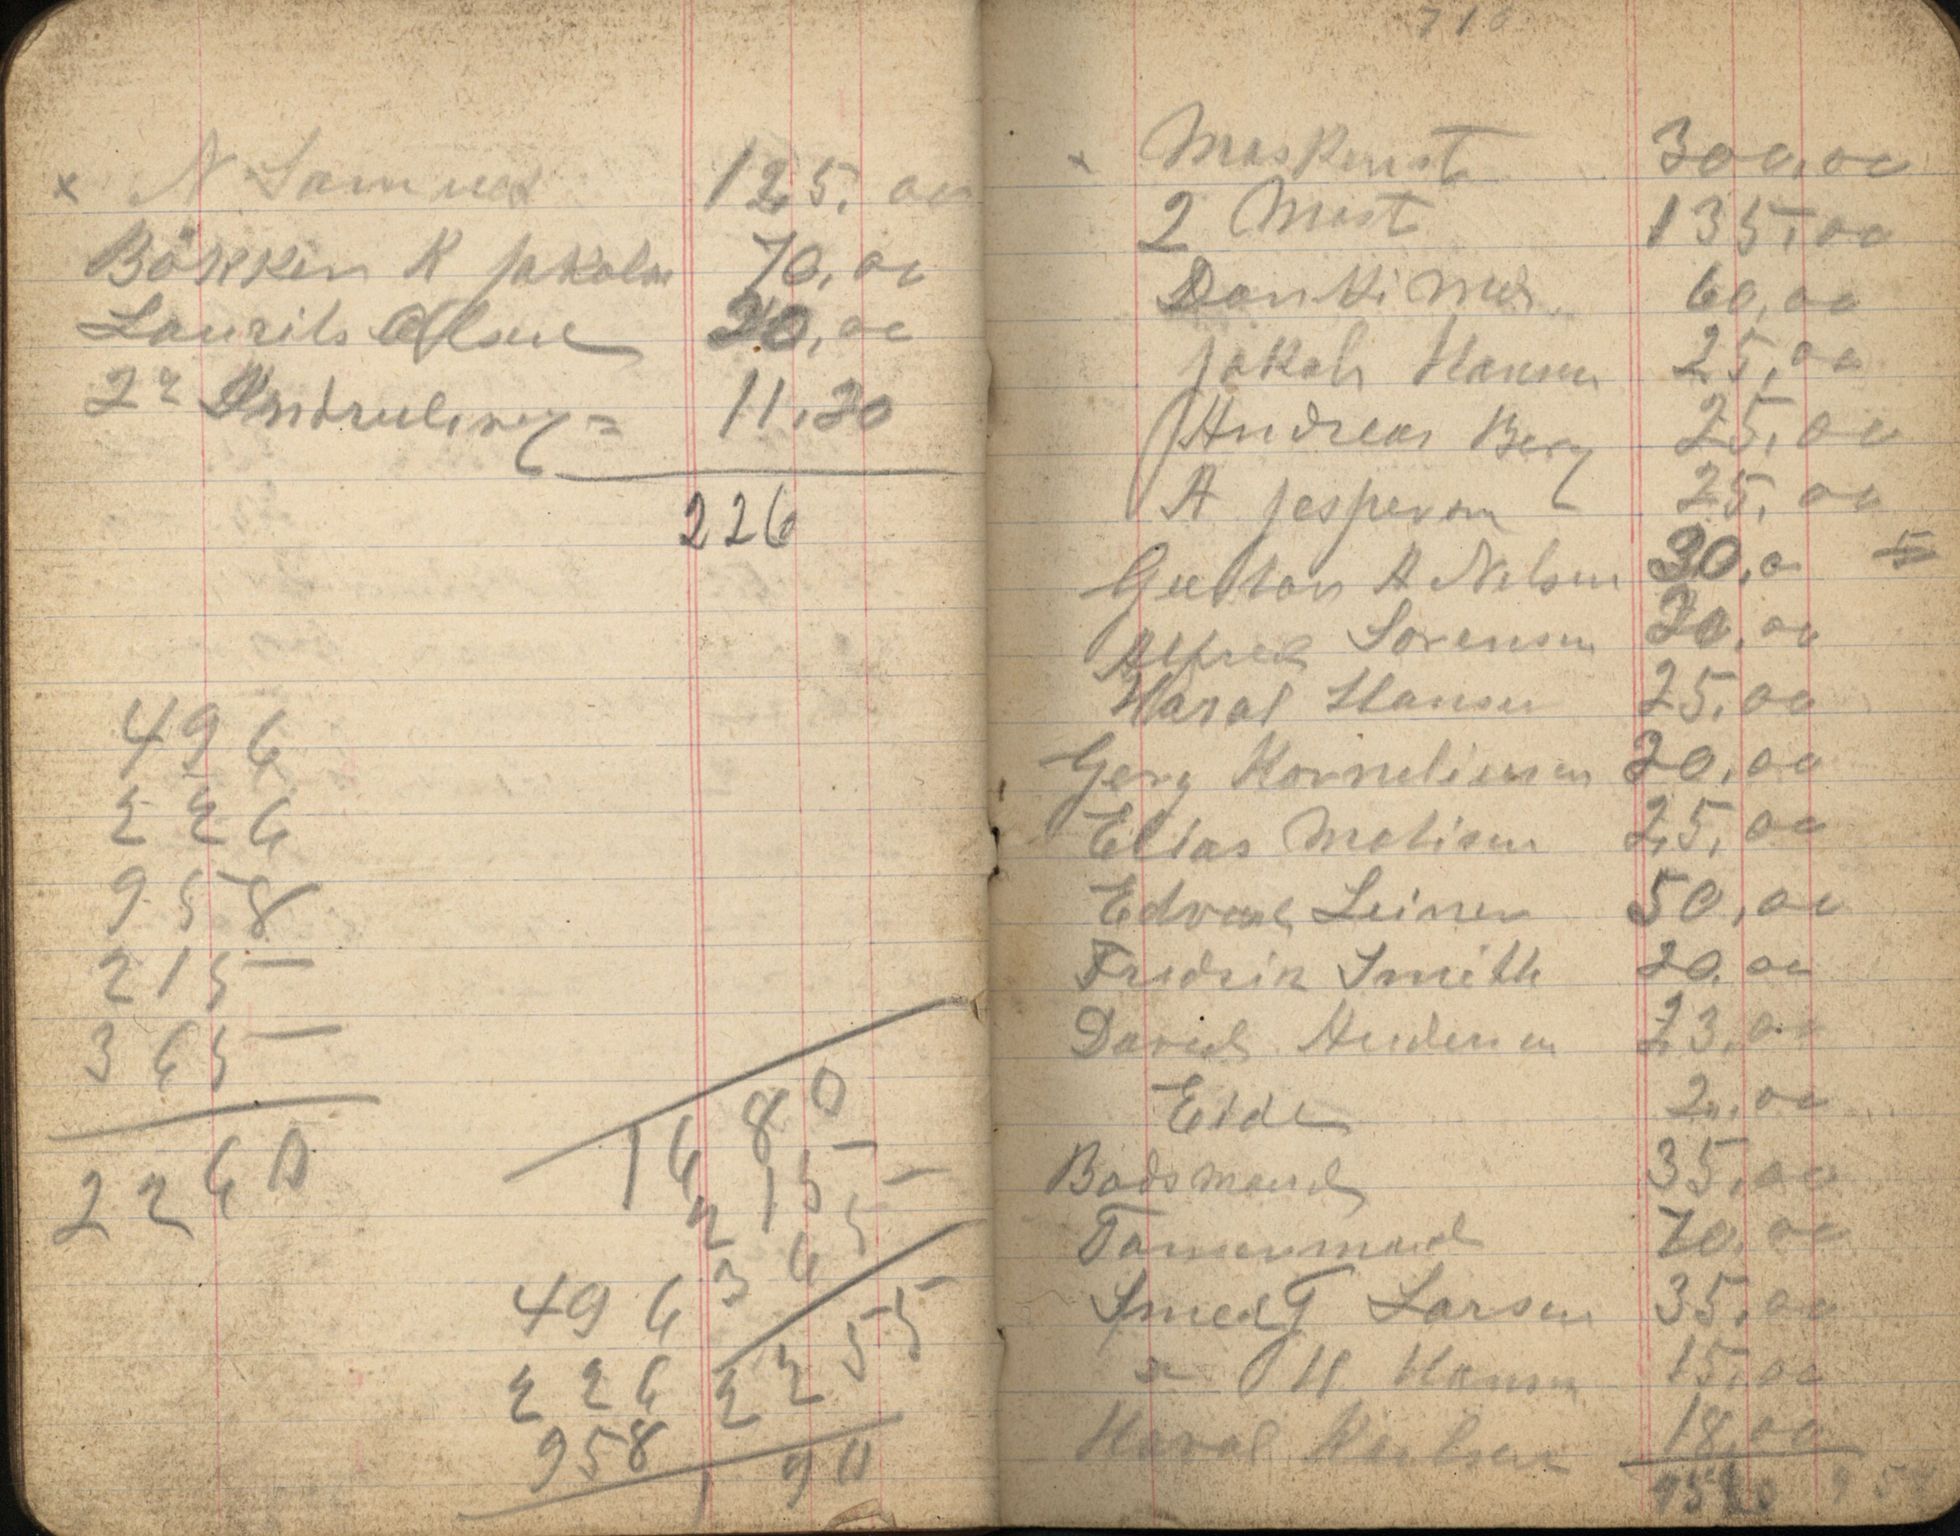 x N Samuel 125.00
Bökken K Jakobs 70,00
Laurils Olsen 20,00
2 11,20
226
496
226
958
215
365
2260
1680
215
365
2255
496
226
958
90
710
x Maskinst 300,00
2 Mast 135,00
60,00
Jakob Hansen 25,00
Andreas Berg 25,00
A Jespersen 25,00
Gustav A Nelsen 30,0 5
Alfred Sorensen 20,00
Haral Hansen 25,00
Gerg Korneliusen 20,00
Elias Matisen 25,00
Edvard Leiner 50,00
Fredrik Smith 20.00
David Andersen 23,00
Eide 2,00
Badsmand 35,00
Tømermand 70,00
Smed G Larsen 35,00
x H Hansen 15,00
Haral 18,00